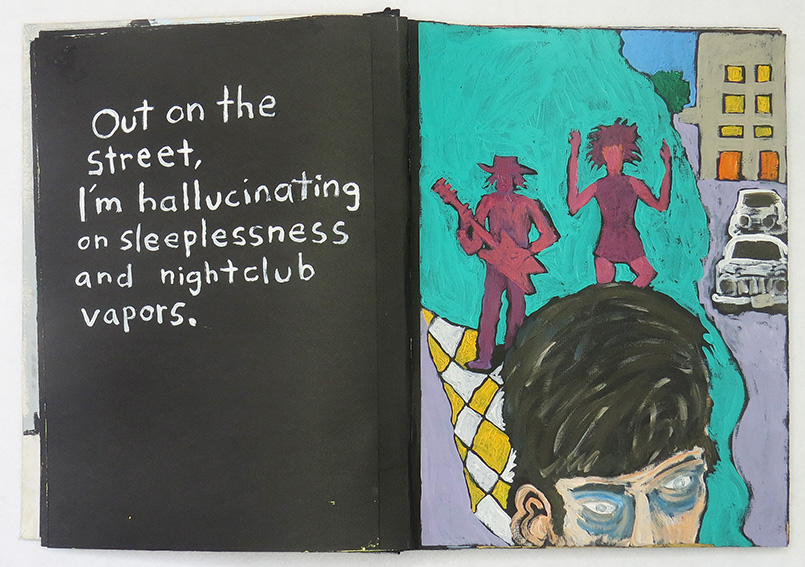 Out on the
street,
I'm hallucinating
on sleeplessness
and nightclub
vapors.